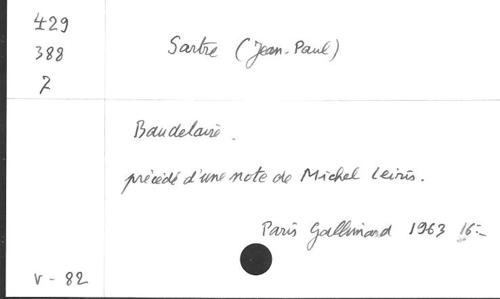 429
388
7
Sartre (Jean-Paul)
Baudelaire.
précédé d'une note de Michel Leiris.
Paris Gallimard 1963 16=
V - 82